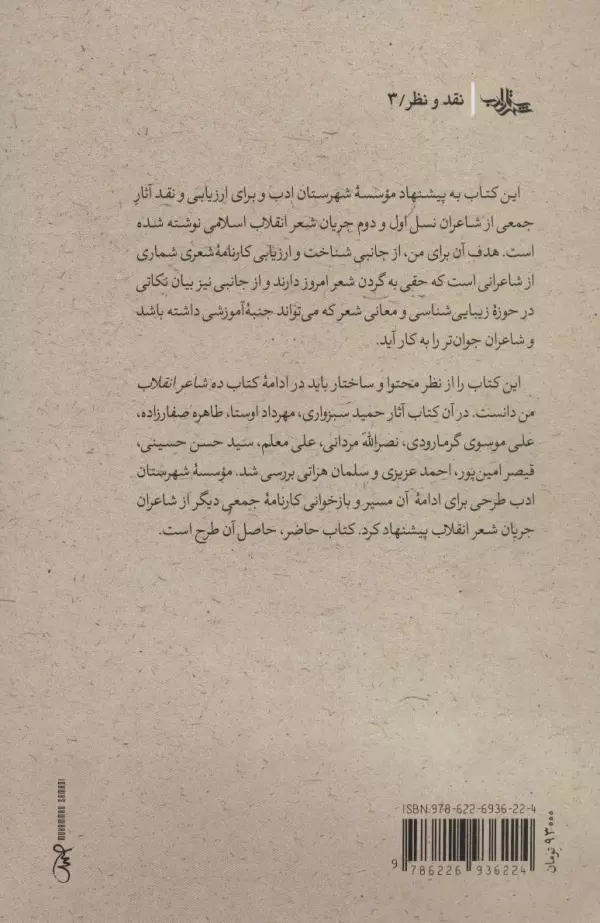 شهرستان ادب
نقد و نظر/۳
این کتاب به پیشنهاد مؤسسهٔ شهرستان ادب و برای ارزیابی و نقد آثارِ
جمعی از شاعران نسل اول و دوم جریان شعر انقلاب اسلامی نوشته شده
است. هدف آن برای من، از جانبی شناخت و ارزیابی کارنامهٔ شعری شماری
از شاعرانی است که حقی به گردن شعر امروز دارند و از جانبی نیز بیان نکاتی
در حوزهٔ زیبایی‌شناسی و معانی شعر که می‌تواند جنبهٔ آموزشی داشته باشد
و شاعران جوان‌تر را به کار آید.
این کتاب را از نظر محتوا و ساختار باید در ادامهٔ کتاب ده شاعر انقلاب
من دانست. در آن کتاب آثار حمید سبزواری، مهرداد اوستا، طاهره صفارزاده،
علی موسوی گرمارودی، نصرالله مردانی، علی معلم، سید حسن حسینی،
قیصر امین‌پور، احمد عزیزی و سلمان هراتی بررسی شد. مؤسسهٔ شهرستان
ادب طرحی برای ادامهٔ آن مسیر و بازخوانی کارنامهٔ جمعی دیگر از شاعران
جریان شعر انقلاب پیشنهاد کرد. کتاب حاضر، حاصل آن طرح است.
ISBN: 978-622-6936-22-4
9 786226 936224
۹۳۰۰۰ تومان
MUHAMMAD SAMADI